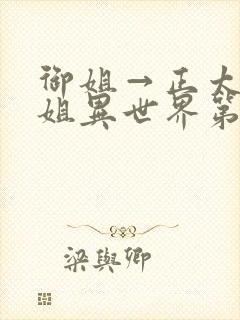 御姐→正太
姐異世界第
梁與卿